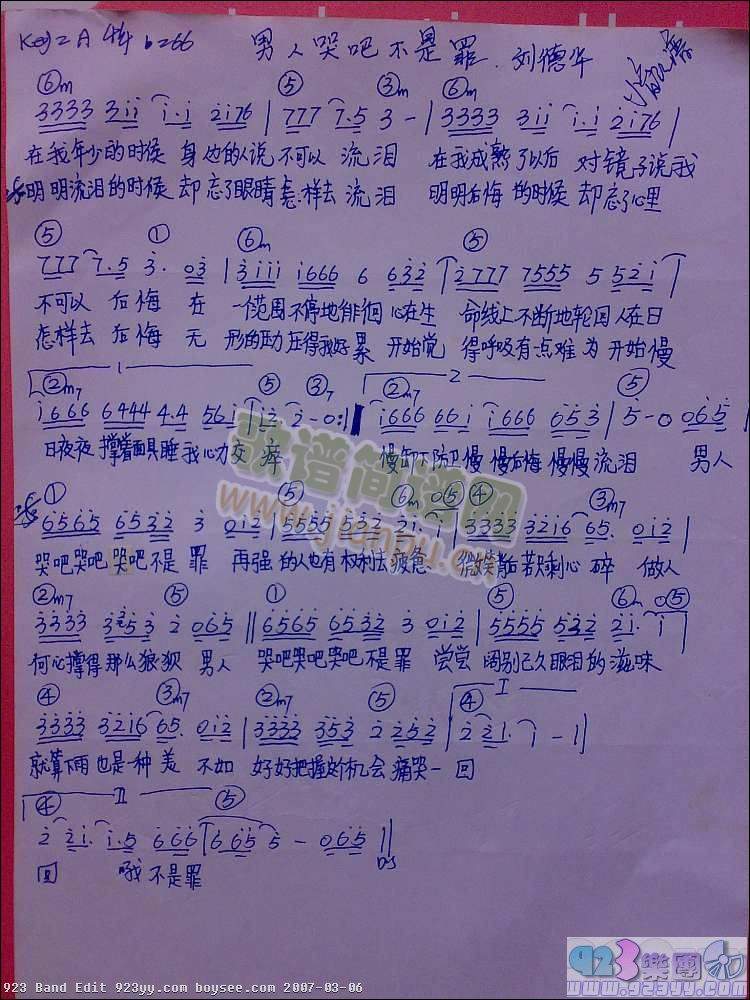 Key=A 4/4 b=66 男人哭吧不是罪. 刘德华
⑥m ⑤ ③m ⑥m
3333 3ii i·i 2i76 | 777 7·5 3 - | 3333 3ii i·i 2i76 |
在我年少的时候 身边的人说 不可以 流泪 在我成熟了以后 对镜子说我
明明流泪的时候 却忘了眼睛怎样去 流泪 明明后悔的时候 却忘了心里
⑤ ① ⑥m ⑤
777 7·5 3· 03 | 3iii i666 6 632 | 2777 7555 5 52i |
不可以 后悔 在 一范围不停地徘徊 心在生 命线上不断地轮回 人在日
怎样去 后悔 无 形的压力压得我好累 开始觉 得呼吸有点难为 开始慢
1 2
②m7 ⑤ ③7 ②m7 ⑤
i666 6444 4·4 56i | 2· 2 - 0 :| i666 66i i666 653 | 5 - 0 065 |
日夜夜 撑着面具睡 我心力交 瘁 慢卸下防卫 慢慢后悔 慢慢流泪 男人
① ⑤ ⑥m ⑤ ④ ③m7
6565 6532 3 0i2 | 5555 532 2i· i | 3333 32i6 65· 0i2 |
哭吧哭吧 哭吧不是 罪 再强 的人也有权利去疲惫 微笑背后若只剩心 碎 做人
②m7 ⑤ ① ⑤ ⑥m ⑤
3333 3 253 2 065 || 6565 6532 3 0i2 | 5555 532 2i· i |
何必撑得 那么狼狈 男人 哭吧哭吧哭吧不是 罪 尝尝 阔别已久眼泪的滋味
I
④ ③m7 ②m7 ⑤ ④
3333 32i6 65· 0i2 | 3333 353 2 2252 | 2 2i· i - 1 |
就算下雨 也是一种 美 不如 好好把握这个机会 痛哭一 回
II
④ ⑤
2 2i· i·5 666 | 665 5 - 065 ||
回 哦 不是罪 DS
歌谱简谱网
www.jianpu.cn
923樂團
www.923yy.com
923 Band Edit 923yy.com boysee.com 2007-03-06